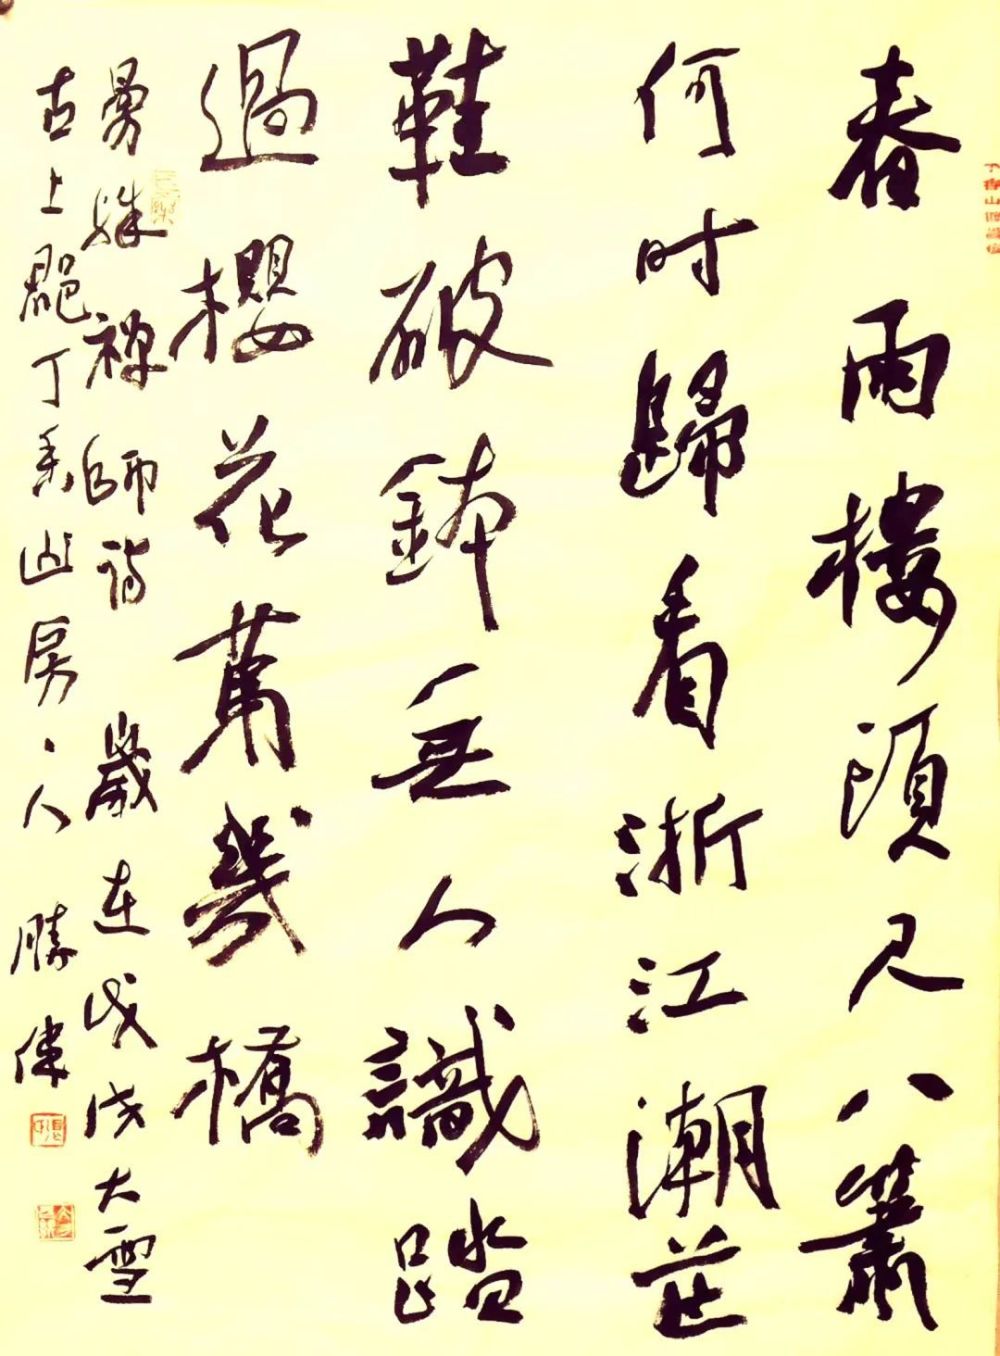 春雨樓頭尺八簫
何时歸看浙江潮芒
鞋破鉢無人識踏
過櫻花第幾橋
曼殊禅師詩 歲在戊戌大雪
古上郡丁山房人 勝偉